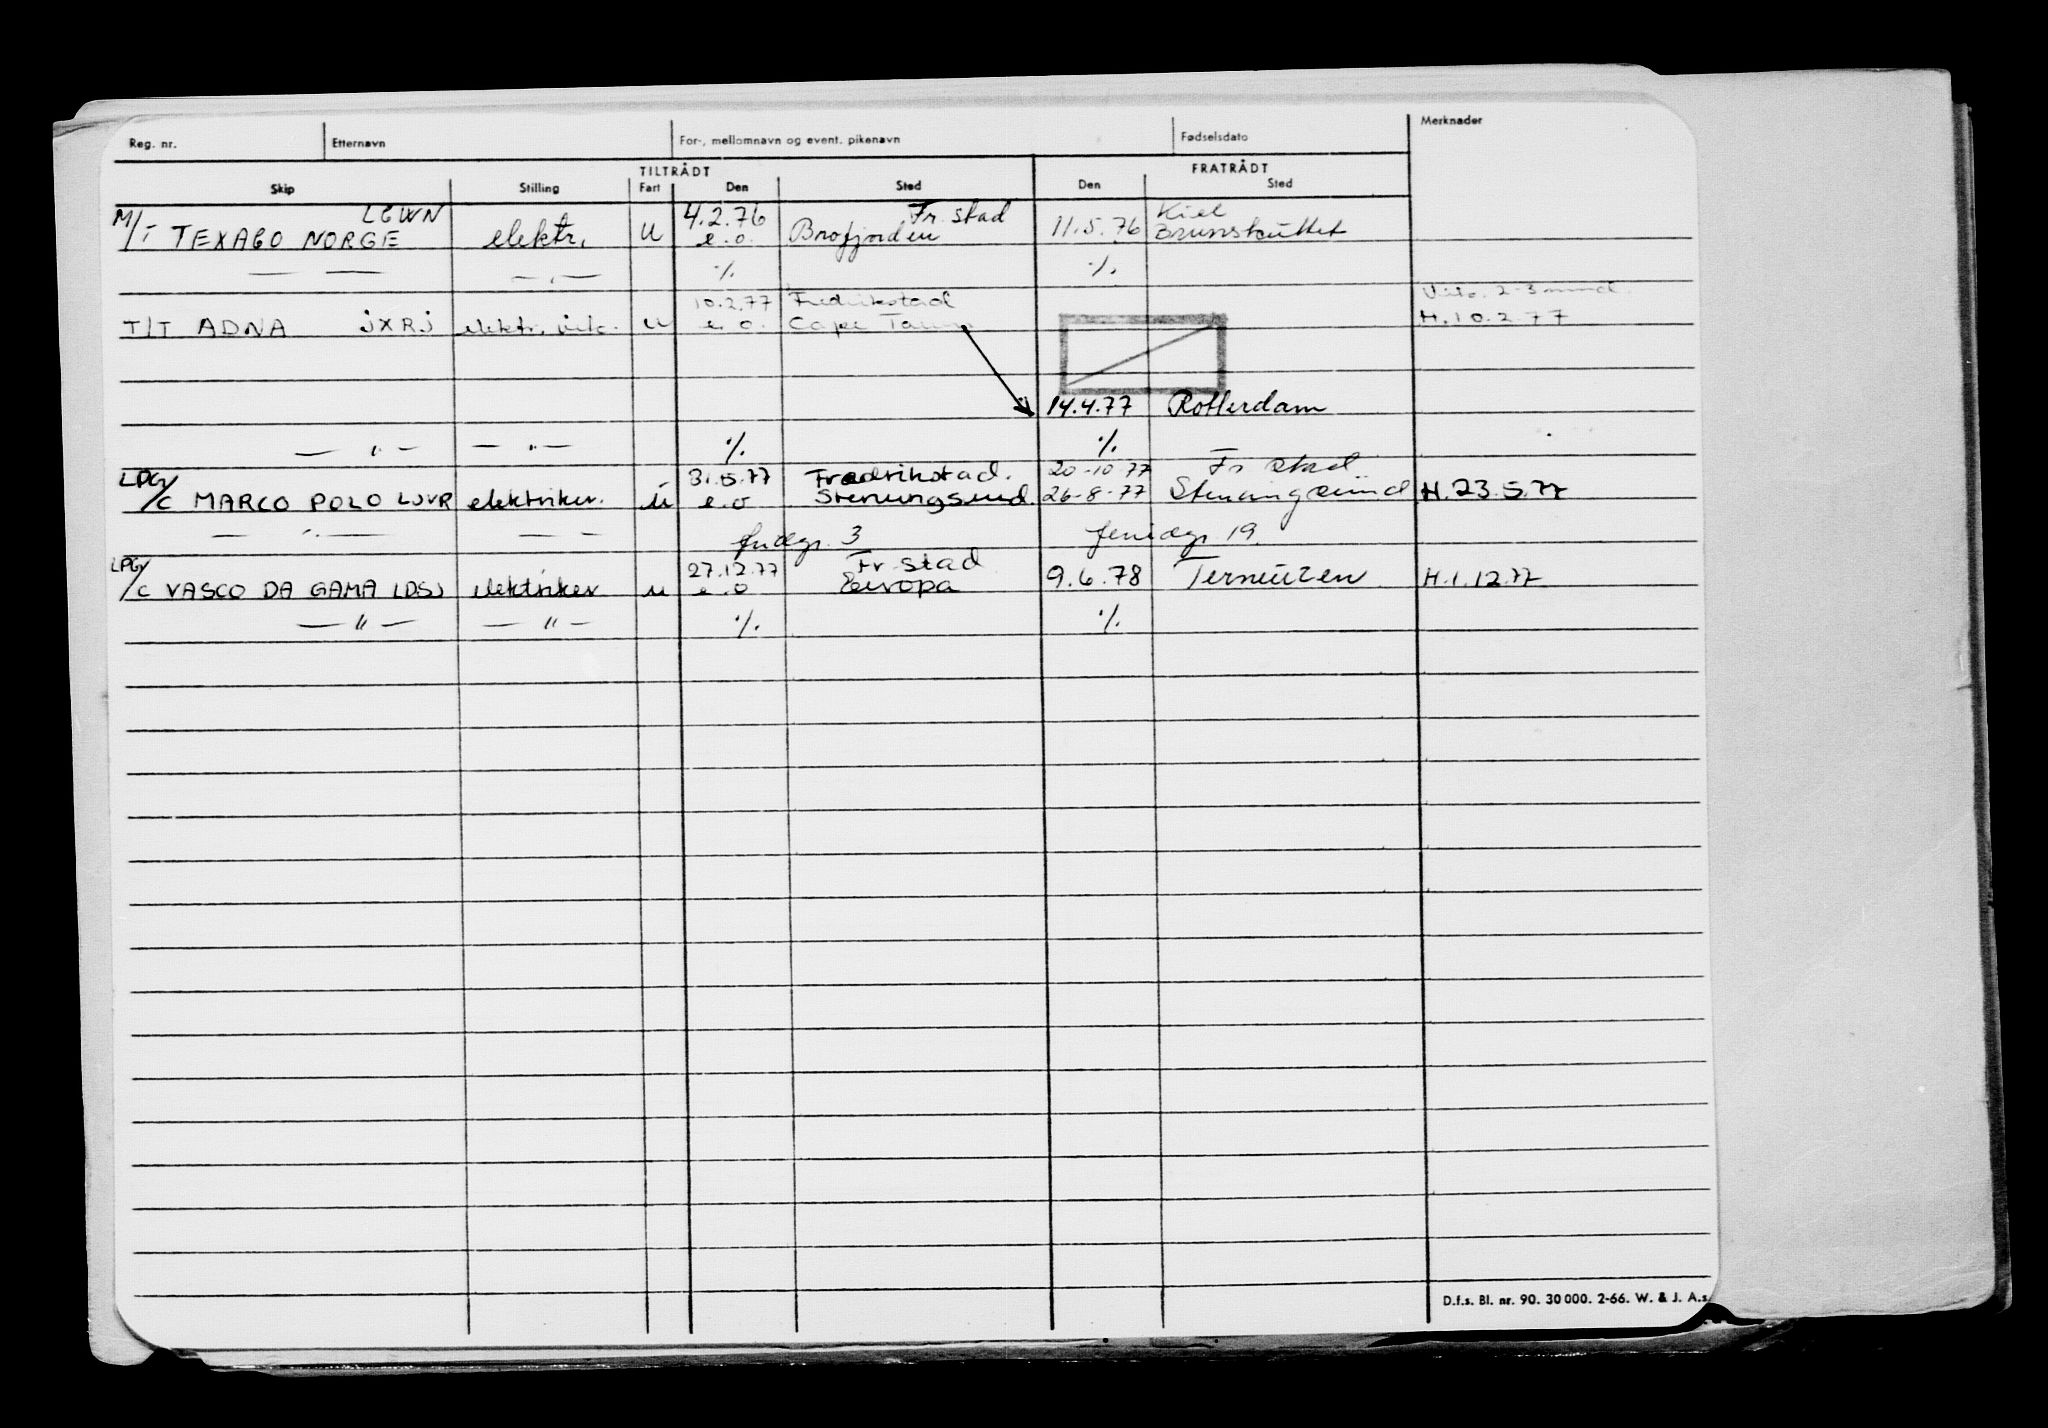 Reg. nr. Etternavn For-, mellomnavn og event. pikenavn Fødselsdato Merknader
TILTRÅDT FRATRÅDT
Skip Stilling Fart Den Sted Den Sted
M/T LGWN 4.2.76 Fr. stad Kiel
TEXACO NORGE elektr. u e.o. Brofjorden 11.5.76 Brunsbüttel
— — — " — ./. ./.
10.2.77 Fredrikstad 2-3 mnd.
T/T ADNA JXRJ elektr. vik. u e.o. Cape Town H.10.2.77
14.4.77 Rotterdam
— " — — " — ./. ./.
LPG/C 31.5.77 Fredrikstad. 20-10-77 Fr stad
MARCO POLO LJVR elektriker. u e.o Stenungsund 26-8-77 Stenungsund H.23.5.77
— " — — — fridgr. 3 19.
LPG/C 27.12.77 Fr stad
VASCO DA GAMA LDSJ elektriker u e.o Europa 9.6.78 Terneuzen H.1.12.77
— " — — " — ./. ./.
D.f.s. Bl. nr. 90. 30 000. 2-66. W. & J. A.s